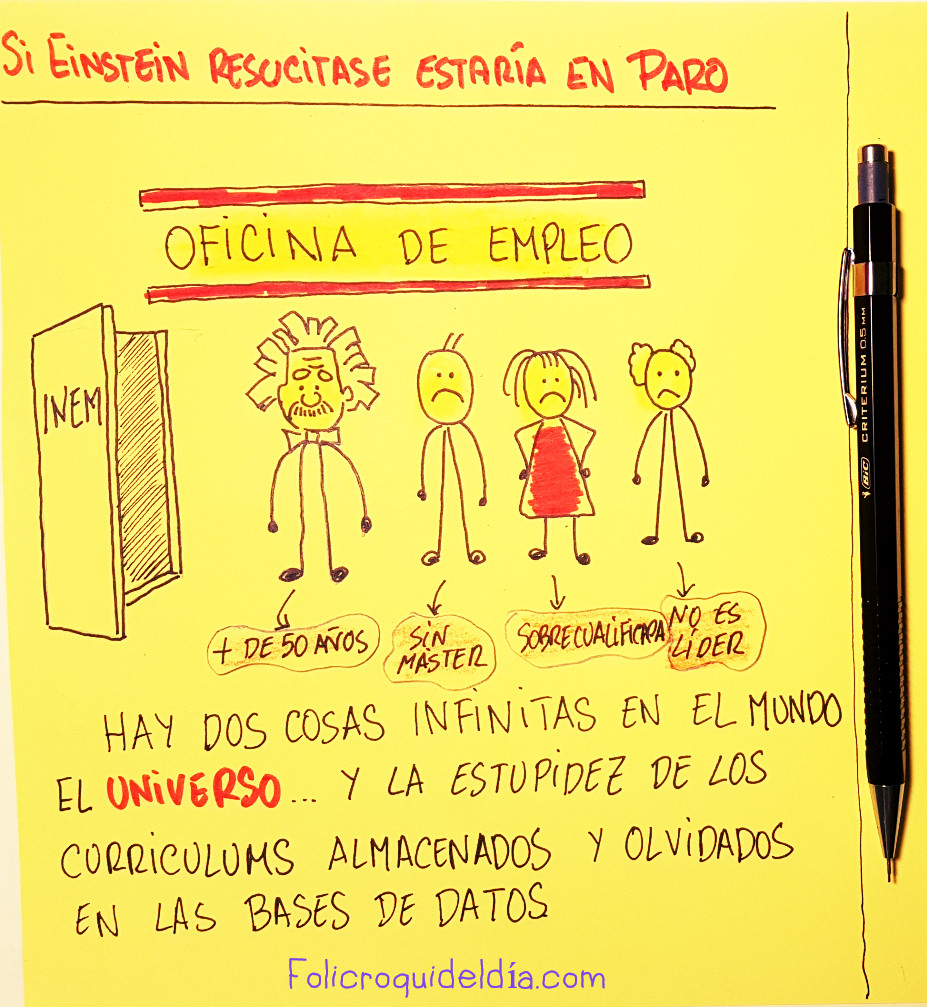 Si EINSTEIN RESUCITASE ESTARÍA EN PARO
OFICINA DE EMPLEO
INEM
+ DE 50 AÑOS
SIN
MÁSTER
SOBRECUALIFICADA
NO ES
LÍDER
HAY DOS COSAS INFINITAS EN EL MUNDO
EL UNIVERSO... Y LA ESTUPIDEZ DE LOS
CURRICULUMS ALMACENADOS Y OLVIDADOS
EN LAS BASES DE DATOS
BIC CRITERIUM 0.5 MM
Folicroquideldía.com